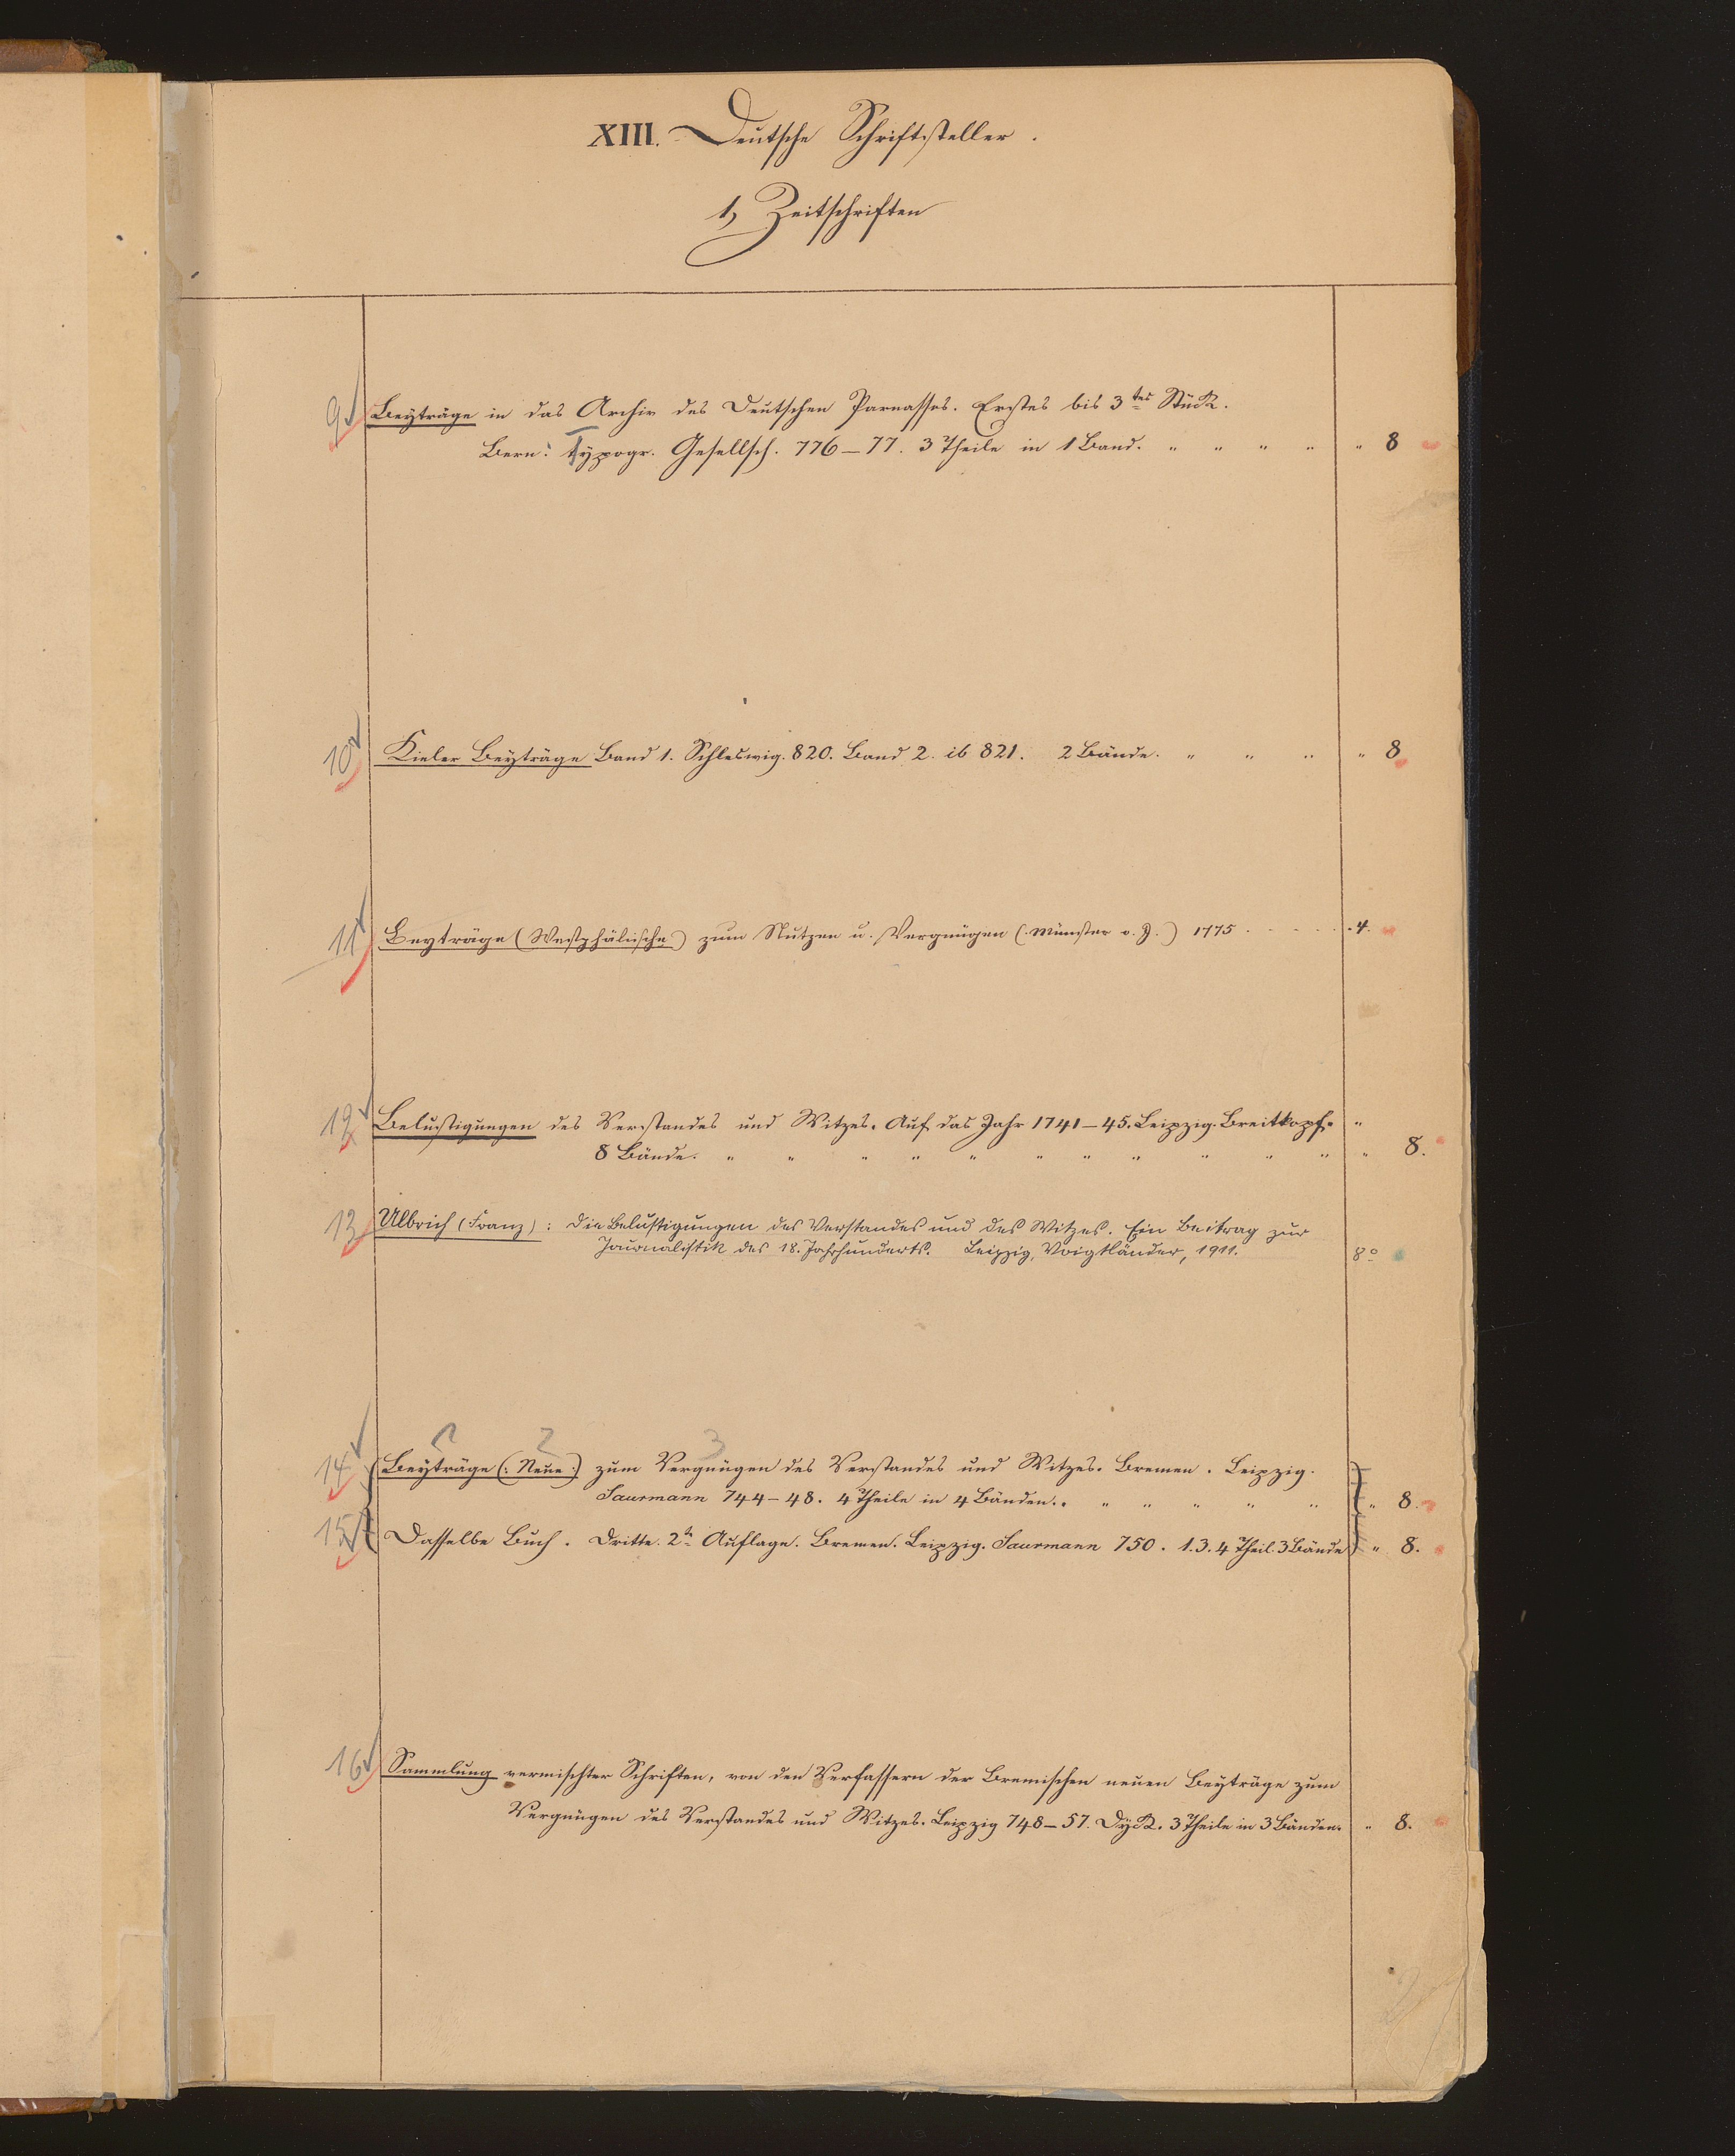 XIII. Deutsche Schriftsteller.
1, Zeitschriften
9 Beyträge in das Archiv des Deutschen Parnasses. Erstes bis 3tes Stück.
Bern: Typogr. Gesellsch. 776–77. 3 Theile in 1 Band. " " " " " 8
10 Kieler Beyträge Band 1. Schleswig. 820. Band 2. ib 821. 2 Bände. " " " " 8
11 Beyträge (Westphälische) zum Nutzen u. Vergnügen (: Münster o. J.) 1775 . . . . . . 4.
12 Belustigungen des Verstandes und Witzes. Auf das Jahr 1741–45. Leipzig. Breitkopf. "
8 Bände. " " " " " " " " " " " " 8.
13 Ulbrich (Franz): Die Belustigungen des Verstandes und des Witzes. Ein Beitrag zur
Journalistik des 18. Jahrhunderts. Leipzig, Voigtländer, 1911. 8°
2 3
14 Beyträge (: Neue :) zum Vergnügen des Verstandes und Witzes. Bremen. Leipzig.
Saurmann 744–48. 4 Theile in 4 Bänden. . " " " " " " 8.
15 Dasselbe Buch. Dritte. 2te Auflage. Bremen. Leipzig. Saurmann 750. 1. 3. 4 Theil. 3 Bände " 8.
16 Sammlung vermischter Schriften, von den Verfassern der Bremischen neuen Beyträge zum
Vergnügen des Verstandes und Witzes. Leipzig 748–57. Dyck. 3 Theile in 3 Bänden. " 8.